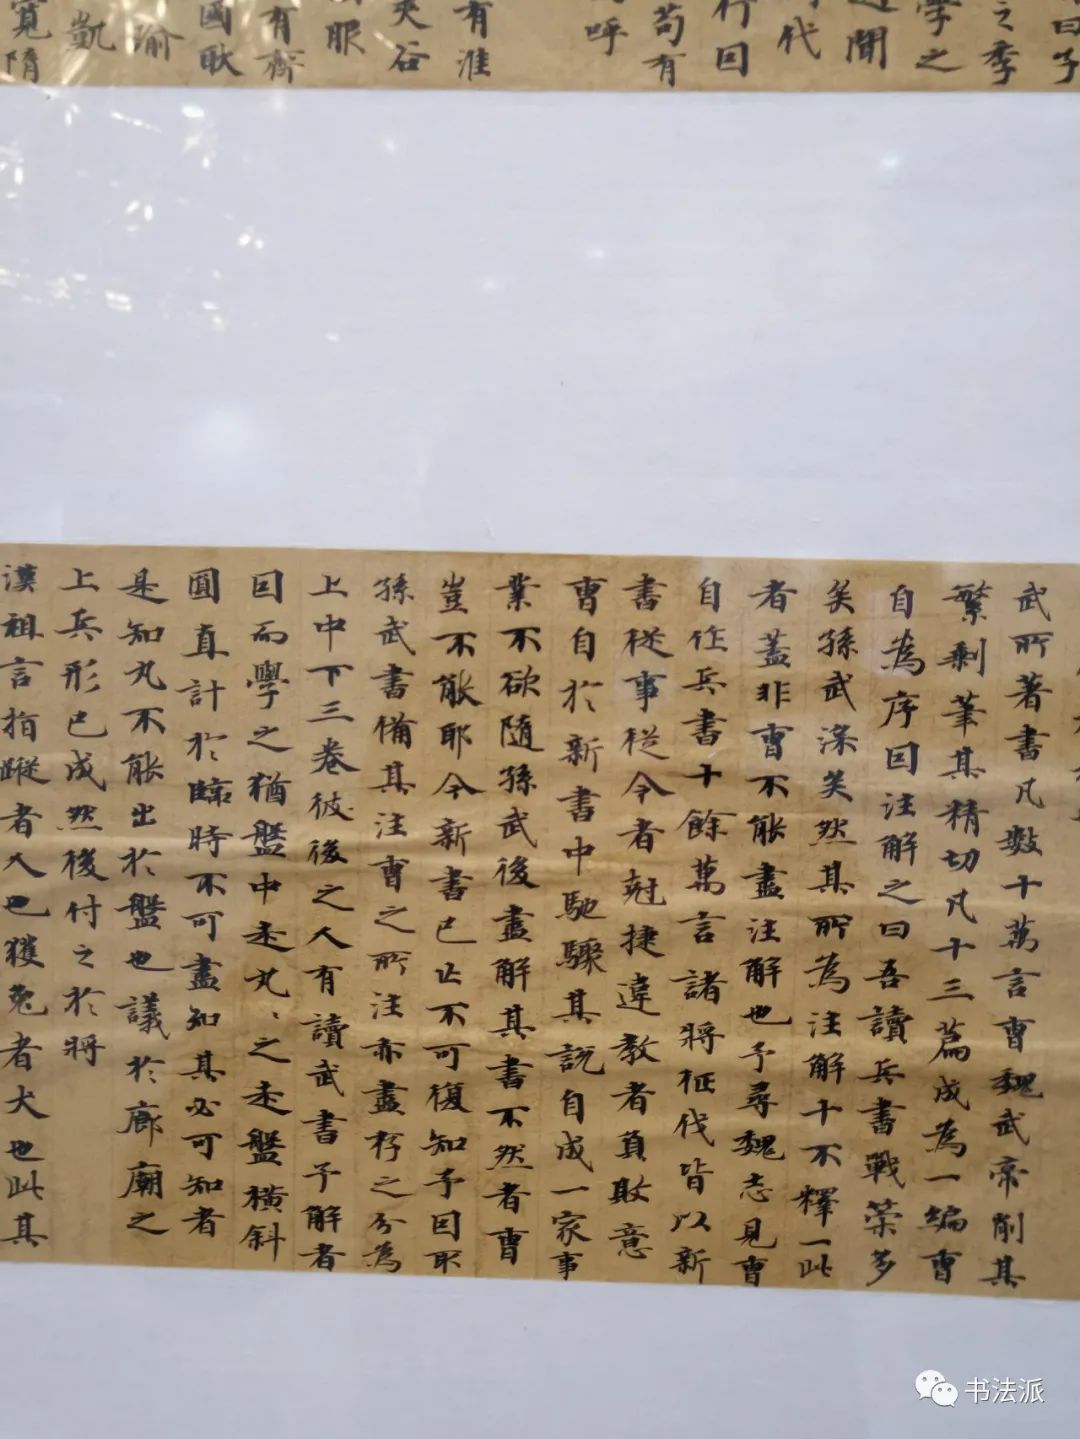 曰子
之季
學之
聞
代
行因
苟有
呼
有淮
夾谷
服
有齊
國耿
瑜
凱
寬隋
武所著書凡數十萬言曹魏武帝削其
繁剩筆其精切凡十三篇成為一編曹
自為序因注解之曰吾讀兵書戰策多
矣孫武深矣然其所為注解十不釋一此
者蓋非曹不能盡注解也予尋魏志見曹
自作兵書十餘萬言諸將征伐皆以新
書從事從令者尅捷違教者負敗意
曹自於新書中馳驟其說自成一家事
業不欲隨孫武後盡解其書不然者曹
豈不能耶今新書已亡不可復知予因取
孫武書備其注曹之所注亦盡存之分為
上中下三卷彼後之人有讀武書予解者
因而學之猶盤中走丸〻之走盤橫斜
圓直計於臨時不可盡知其必可知者
是知丸不能出於盤也議於廊廟之
上兵形已成然後付之於將
漢祖言指蹤者人也獲兔者犬也此其
书法派